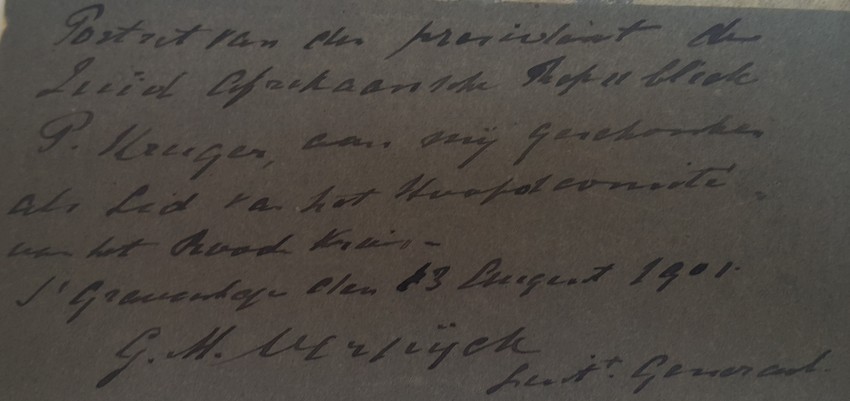 Portret van den president der
Zuid Afrikaansche Republiek
P. Kruger, aan mij geschonken
als Lid van het Hoofdcomité
van het Rood Kruis.-
S'Gravenhage den 13 August 1901.
G. M. Verspijck
Luitt. Generaal.